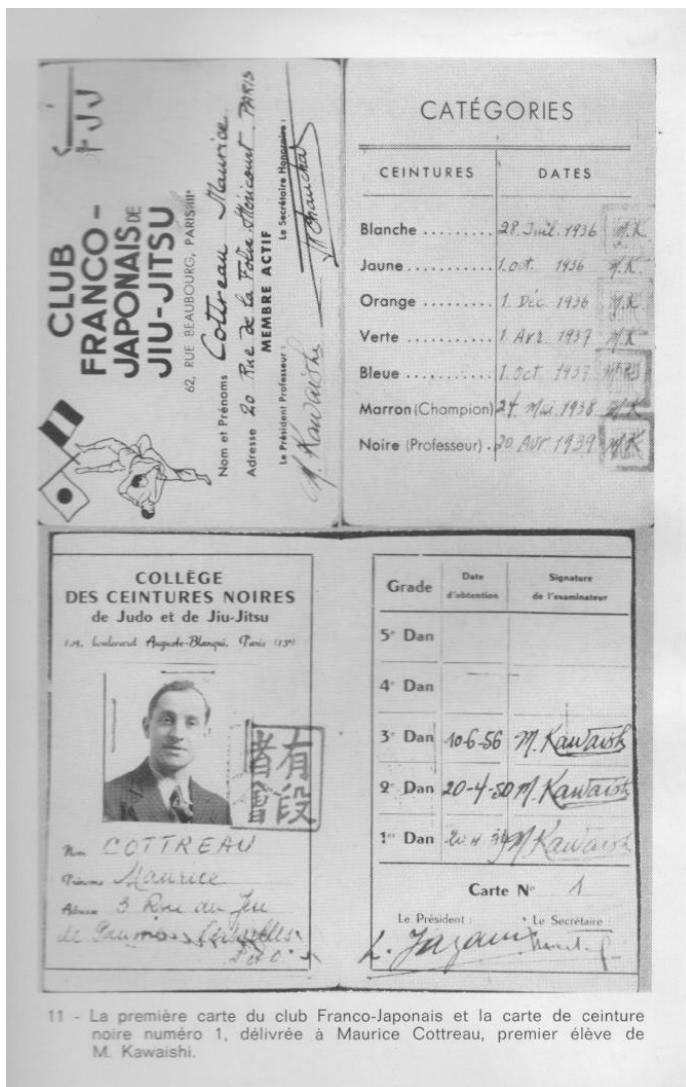 CLUB
FRANCO-
JAPONAIS DE
JIU-JITSU
62, RUE BEAUBOURG, PARIS III°
Nom et Prénoms Cottreau Maurice
Adresse 20 Rue de la Folie Méricourt PARIS
MEMBRE ACTIF
Le Président Professeur : Le Secrétaire Honoraire :
M. Kawaishi
CATÉGORIES
CEINTURES DATES
Blanche .......... 28 Juil. 1936 M.K
Jaune .......... 1. oct. 1936 M.K.
Orange .......... 1. Déc 1936 M.K
Verte .......... 1 Avr. 1937 M.K
Bleue .......... 1. Oct 1937
Marron (Champion) 24 Mai 1938 M.K
Noire (Professeur) . 20 Avr. 1939 M.K
COLLÈGE
DES CEINTURES NOIRES
de Judo et de Jiu-Jitsu
boulevard Auguste-Blanqui, Paris (13°)
有段
者會
Nom COTTREAU
Prénoms Maurice
Adresse 3 Rue du Jeu
de Paume
Grade Date d'obtention Signature de l'examinateur
5° Dan
4° Dan
3° Dan 10-6-56 M. Kawaishi
2° Dan 20-4-50 M. Kawaishi
1er Dan M Kawaishi
Carte N° 1
Le Président : Le Secrétaire
11 - La première carte du club Franco-Japonais et la carte de ceinture
noire numéro 1, délivrée à Maurice Cottreau, premier élève de
M. Kawaishi.